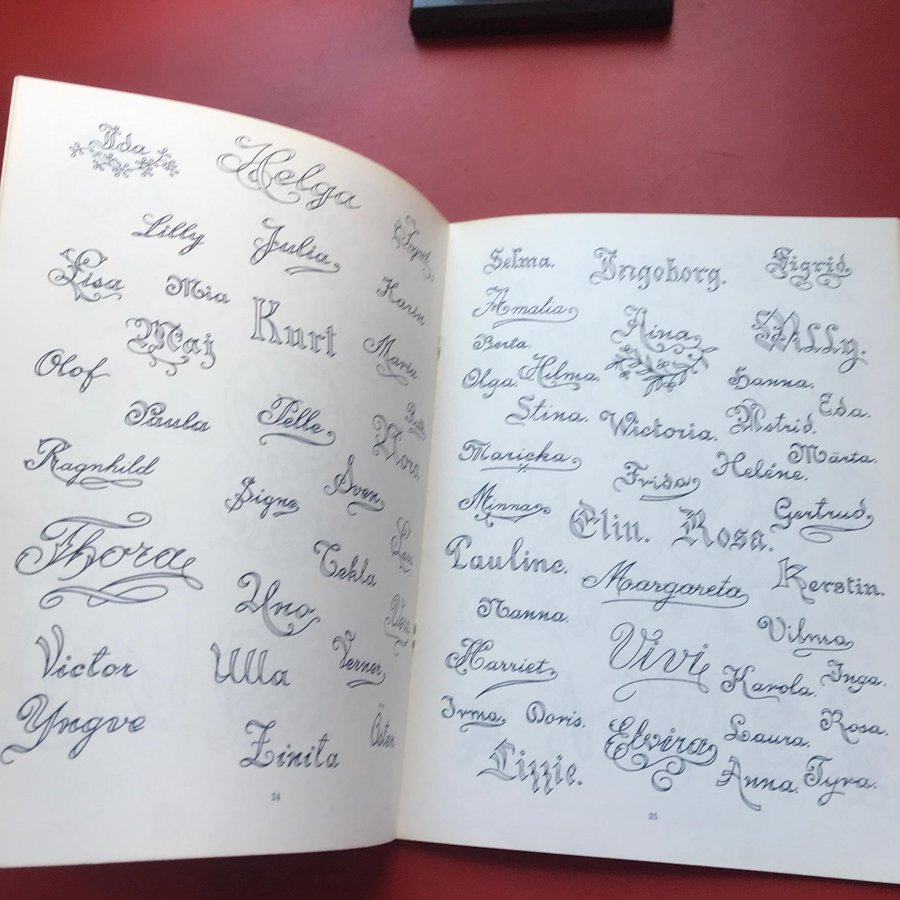 Ida
Helga
Lilly
Julia
Lisa
Mia
Karin
Maj
Kurt
Maria
Olof
Paula
Pelle
Ruth
Nora
Ragnhild
Signe
Sven
Thora
Tekla
Uno
Vera
Victor
Ulla
Verner
Yngve
Zinita
Östen
24
Selma.
Ingoborg.
Sigrid.
Amalia.
Aina.
Willy.
Berta.
Olga.
Hilma.
Hanna.
Stina.
Wictoria.
Astrid.
Eda.
Maricka.
Frida.
Heléne.
Märta.
Minna.
Elin.
Rosa.
Gertrud.
Pauline.
Margareta
Kerstin.
Nanna.
Vivi
Vilma.
Harriet.
Karola.
Inga.
Irma.
Doris.
Elvira.
Laura.
Rosa.
Lizzie.
Anna.
Tyra.
25